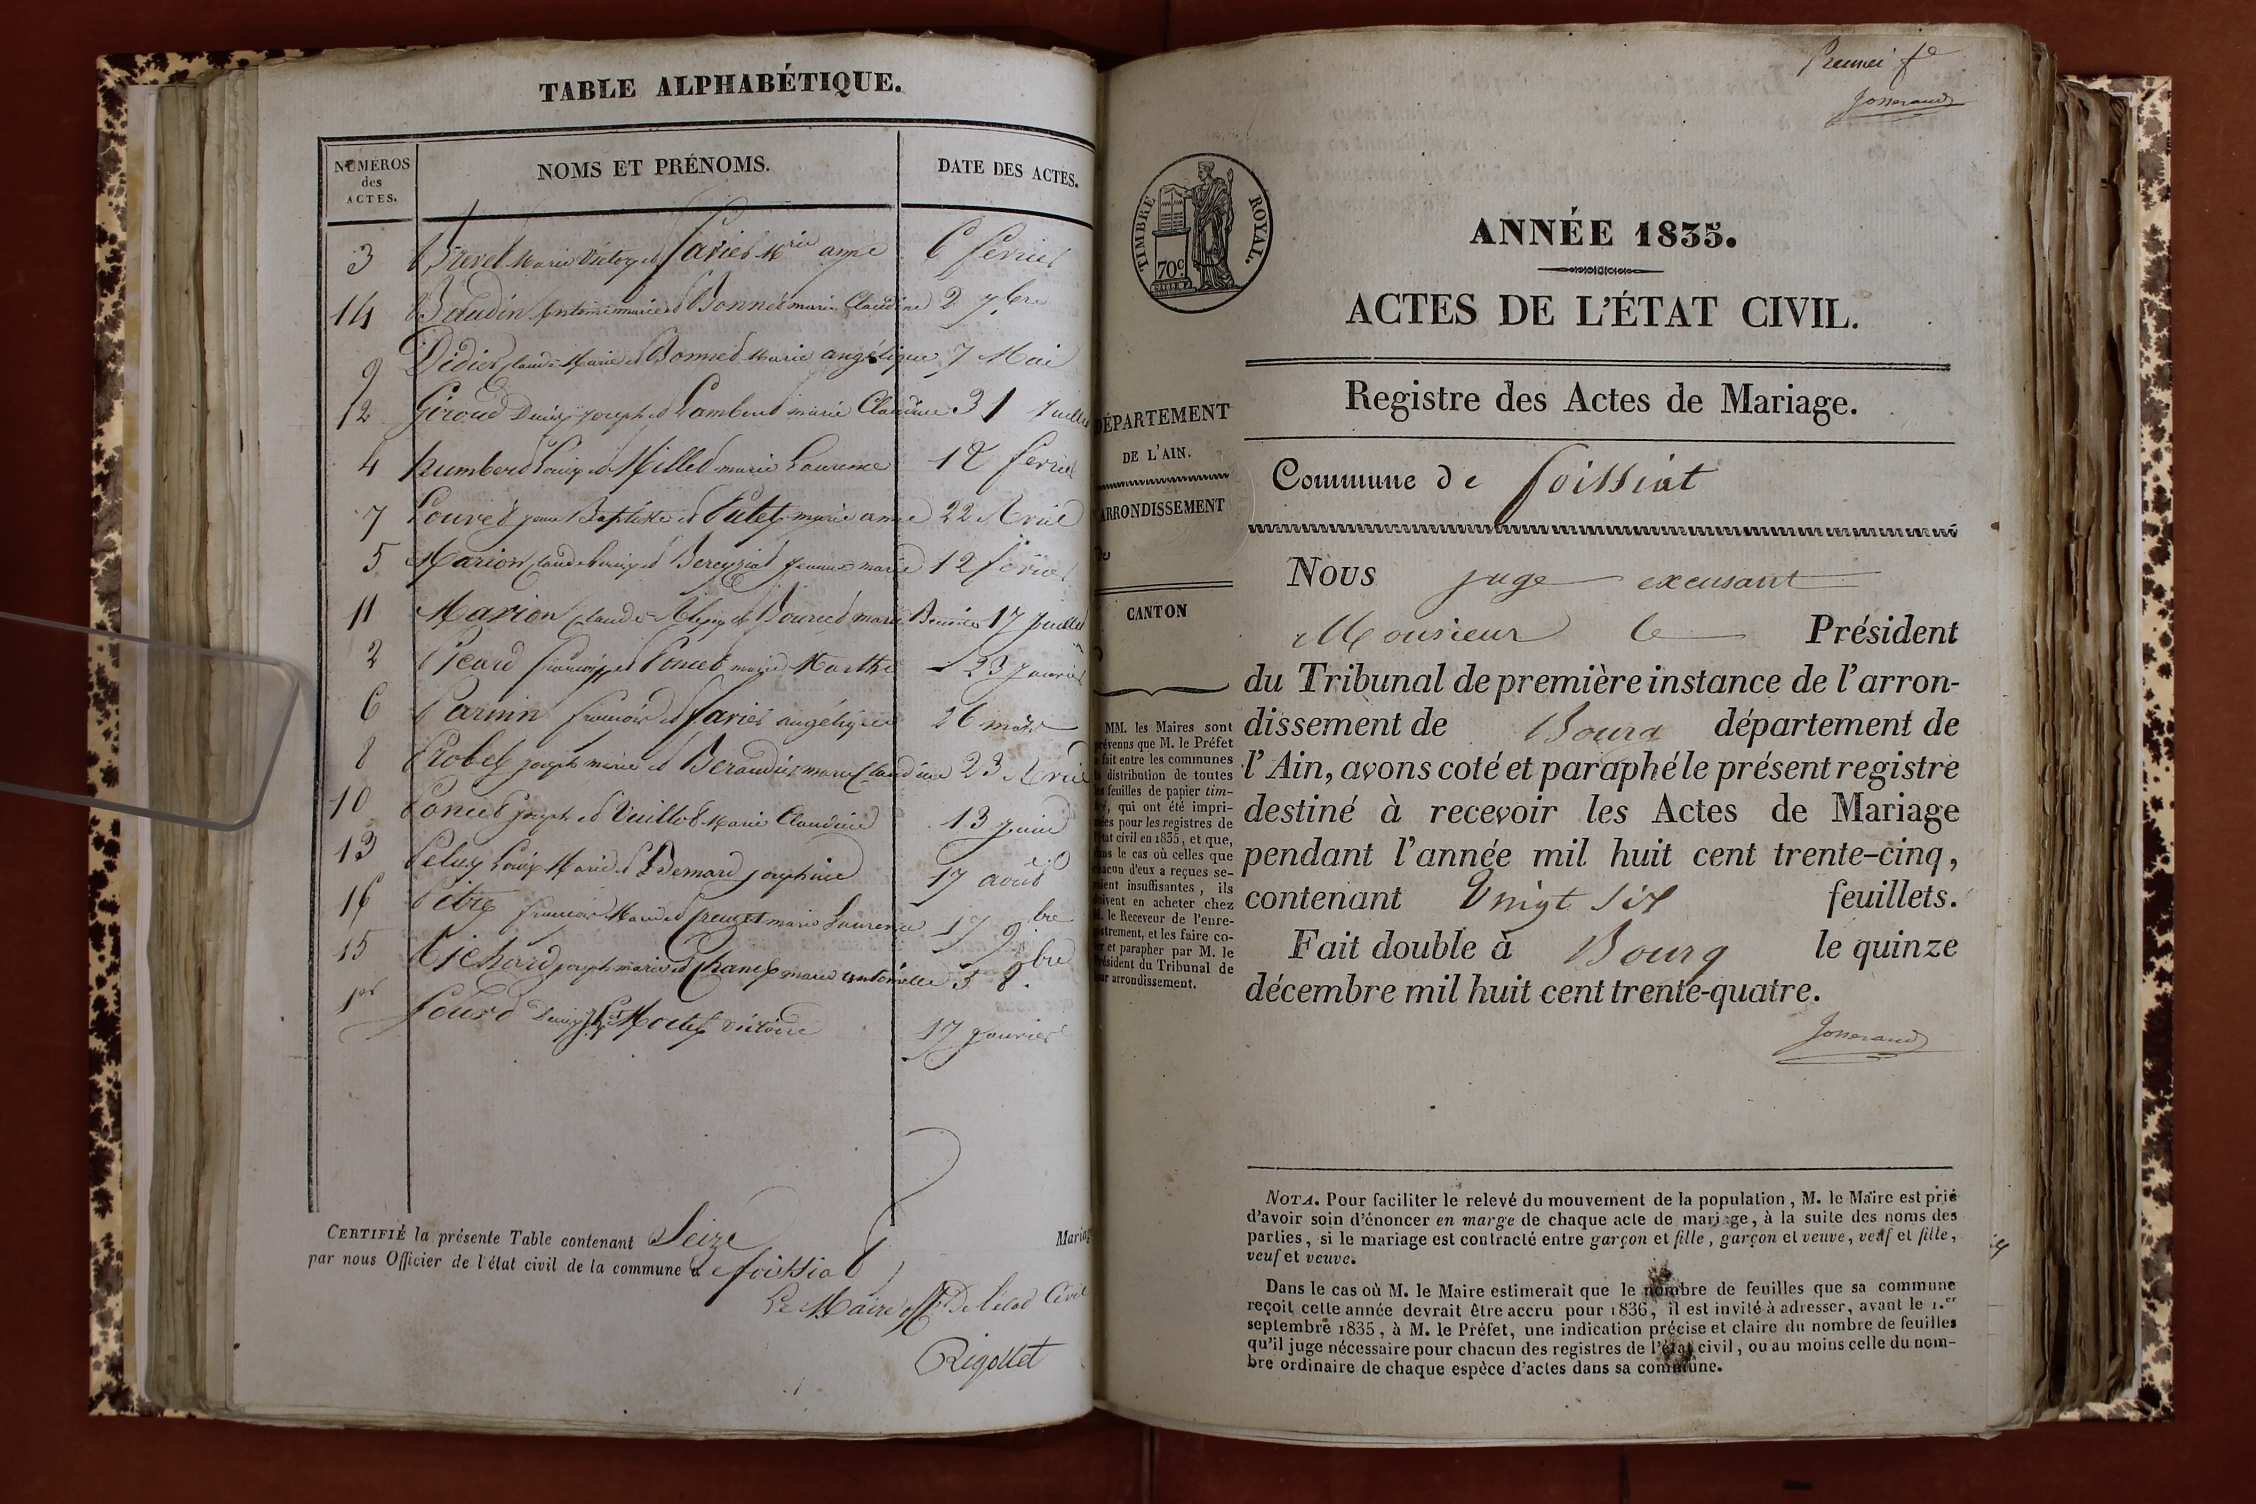 TABLE ALPHABÉTIQUE.
NUMÉROS des ACTES.
NOMS ET PRÉNOMS.
DATE DES ACTES.
3 Brevet Marie Victoy et favier Mrie anne 6 fevrier
14 Baudin antoine marie et Bonnet marie Claudine 2 7.bre
9 Didier Claude Marie et Bonnet Marie angélique 7 Mai
12 Giroud Denis joseph et Lambert marie Claudine 31 juillet
4 humbert Louis et Millet marie Laurence 12 fevrier
7 Louvet jean Baptiste et Putet marie anne 22 Avril
5 Marion Claude Louis et Bereyziat jeanne marie 12 fevrier
11 Marion Claude et Bourcet marie 17 juillet
2 Picard françois et Poncet marie Marthe 23 janvier
6 francois et favier angélique 26 mars
8 Probet joseph marie et Beraudier marie Claudine 23 Avril
10 Poncet joseph et Vuillot Marie Claudine 13 juin
13 Peluy Louis Marie et Bernard josephine 17 août
16 Pitre francois Marie et Creuzet marie Laurence 17 9.bre
15 Richard joseph marie et Chanel marie antoinette 5 8.bre
1er Denis et victoire 17 janvier
CERTIFIÉ la présente Table contenant Seize
Mariag
par nous Officier de l'état civil de la commune de foissiat
Le Maire off. De l'état Civil
Rigollet
Premier fe
Josserand
TIMBRE ROYAL.
70c
ANNÉE 1835.
ACTES DE L'ÉTAT CIVIL.
Registre des Actes de Mariage.
DÉPARTEMENT
DE L'AIN.
ARRONDISSEMENT
de
CANTON
Commune de foissiat
Nous juge excusant
Monsieur le Président
du Tribunal de première instance de l'arron-
dissement de Bourg département de
l'Ain, avons coté et paraphé le présent registre
destiné à recevoir les Actes de Mariage
pendant l'année mil huit cent trente-cinq,
contenant Vingt six feuillets.
Fait double à Bourg le quinze
décembre mil huit cent trente-quatre.
Josserand
MM. les Maires sont
prévenus que M. le Préfet
a fait entre les communes
la distribution de toutes
les feuilles de papier tim-
bré, qui ont été impri-
mées pour les registres de
l'état civil en 1835, et que,
dans le cas où celles que
chacun d'eux a reçues se-
raient insuffisantes, ils
doivent en acheter chez
M. le Receveur de l'enre-
gistrement, et les faire co-
ter et parapher par M. le
Président du Tribunal de
leur arrondissement.
NOTA. Pour faciliter le relevé du mouvement de la population, M. le Maire est prié
d'avoir soin d'énoncer en marge de chaque acte de mariage, à la suite des noms des
parties, si le mariage est contracté entre garçon et fille, garçon et veuve, veuf et fille,
veuf et veuve.
Dans le cas où M. le Maire estimerait que le nombre de feuilles que sa commune
reçoit cette année devrait être accru pour 1836, il est invité à adresser, avant le 1.er
septembre 1835, à M. le Préfet, une indication précise et claire du nombre de feuilles
qu'il juge nécessaire pour chacun des registres de l'état civil, ou au moins celle du nom-
bre ordinaire de chaque espèce d'actes dans sa commune.